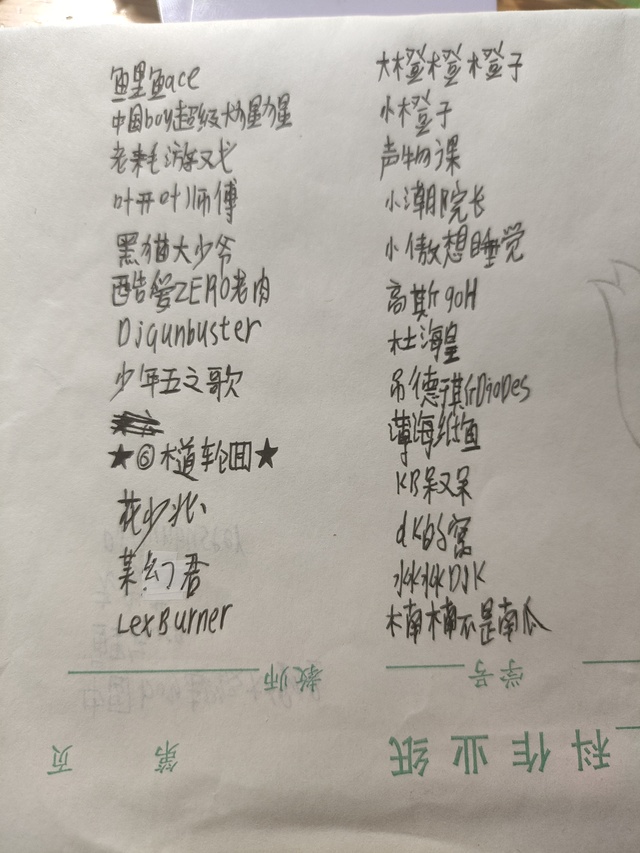 鲤鱼ace
中国boy超级大猩猩
老耗游戏
叶开叶师傅
黑猫大少爷
酷爱ZERO老肉
Djgunbuster
少年五之歌
★⑥道轮回★
花少北
某幻君
LexBurner
大橙橙橙子
小橙子
声物课
小潮院长
小傲想睡觉
高斯goH
杜海皇
吊德斯DioDes
薄海纸鱼
KB呆又呆
dK的窝
冰冰DJK
楠楠不是南瓜
教师
学号
科作业纸
第
页